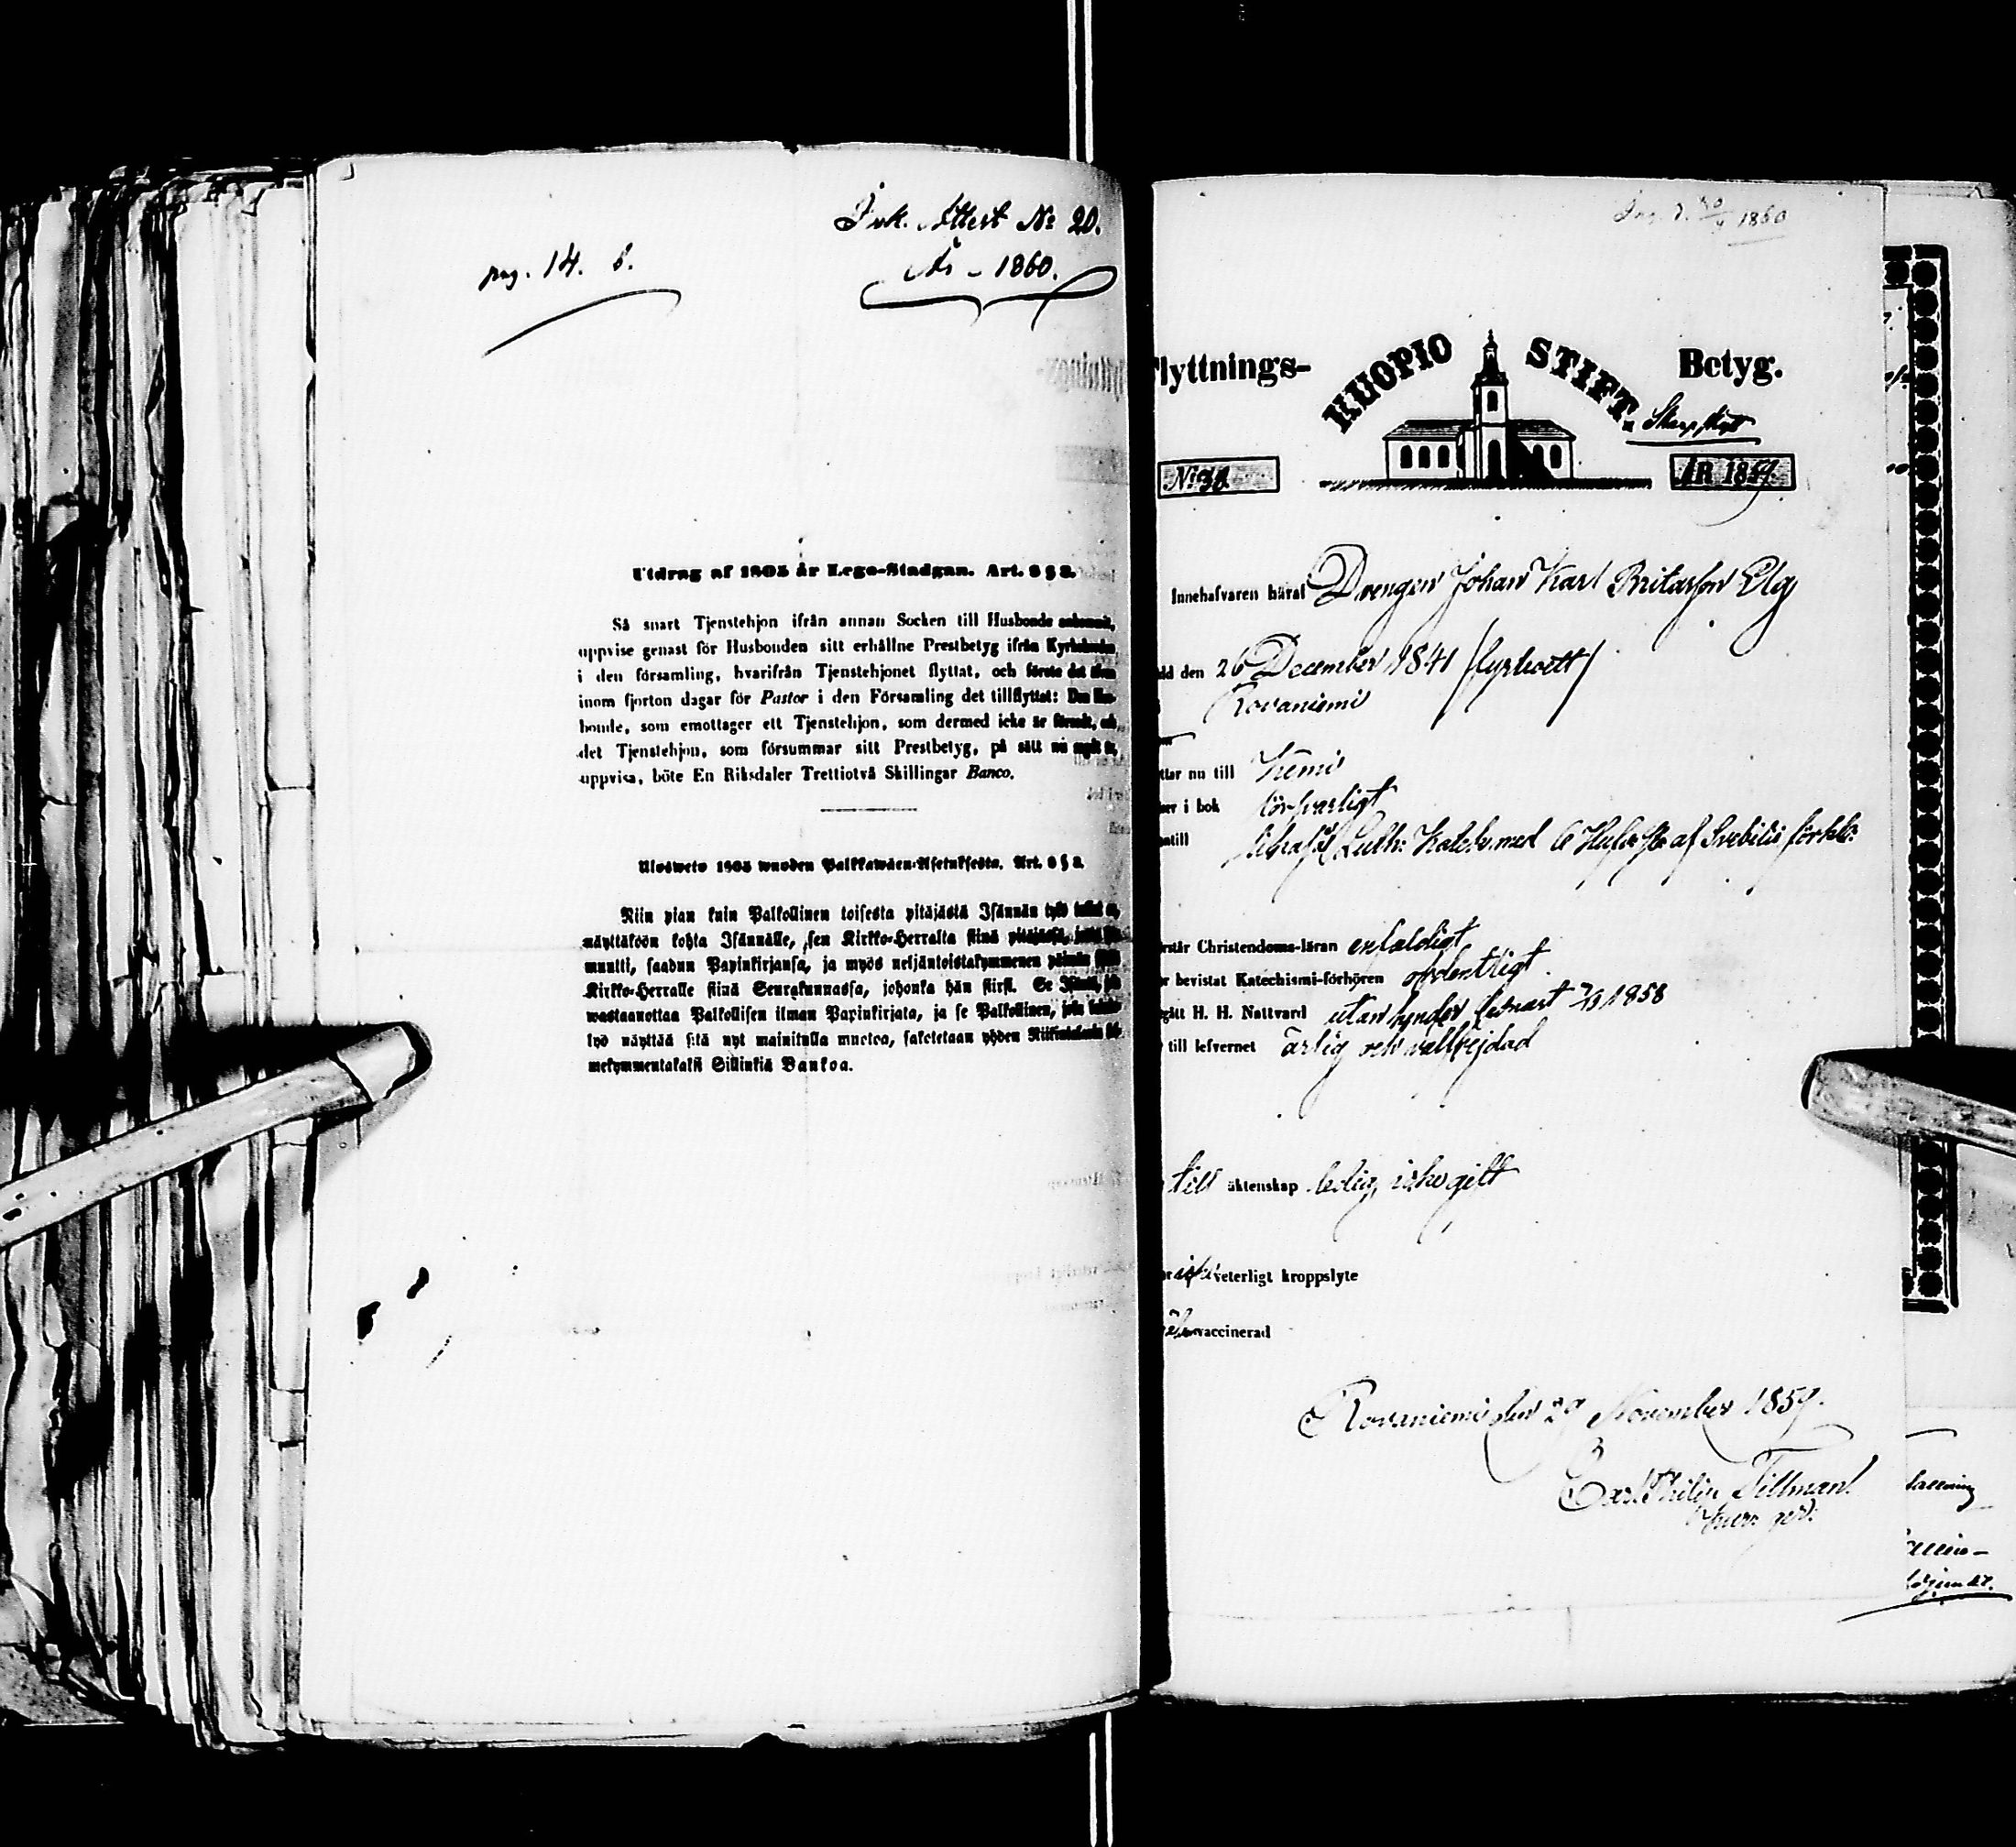 Ink. Attest No 20.
pag. 14. b.
År - 1860.
Utdrag af 1805 år Lego-Stadgan. Art. 8 § 2.
Så snart Tjenstehjon ifrån annan Socken till Husbonde ankommit,
uppvise genast för Husbonden sitt erhållne Prestbetyg ifrån
i den församling, hvarifrån Tjenstehjonet flyttat, och förete det
inom fjorton dagar för Pastor i den Församling det tillflyttat: Den Hus-
bonde, som emottager ett Tjenstehjon, som dermed icke är försedt, och
det Tjenstehjon, som försummar sitt Prestbetyg, på sätt nu sagdt är,
uppvisa, böte En Riksdaler Trettiotvå Skillingar Banco.
Ulosweto 1805 wuoden Palkkawäen-Asetuksesta. Art. 8 § 2.
Niin pian kuin Palkollinen toisesta pitäjästä Isännän työ tullut on,
näyttäköön kohta Isännälle, sen Kirkko-Herralta siinä pitäjässä,
muutti, saadun Papinkirjansa, ja myös neljäntoistakymmenen päiwän
Kirkko-Herralle siinä Seurakunnassa, johonka hän siirsi. Se
wastaanottaa Palkollisen ilman Papinkirjata, ja se Palkollinen, joka
lyö näyttää sitä nyt mainitulla muotoa, saketetaan yhden
mekymmentäkaksi Sillinkiä Bankoa.
1860
lyttnings- KUOPIO STIFT. Betyg.
No 38. ÅR 1859
Innehafvaren häraf Drengen Johan Karl Britasson Elg
dd den 26 December 1841
Rovaniemi
ttar nu till Kemi
er i bok försvarligt
ntill Luth: Katek. med af Svebilii förkl:
rstår Christendoms-läran enfaldigt
r bevistat Katechismi-förhören ordentligt.
gått H. H. Nattvard utan hinder senast 1858
till lefvernet ärlig och välfrejdad
till äktenskap ledig, icke gift
veterligt kroppslyte
vaccinerad
Rovaniemi den 29 November 1859.
Carl Philip Tillman